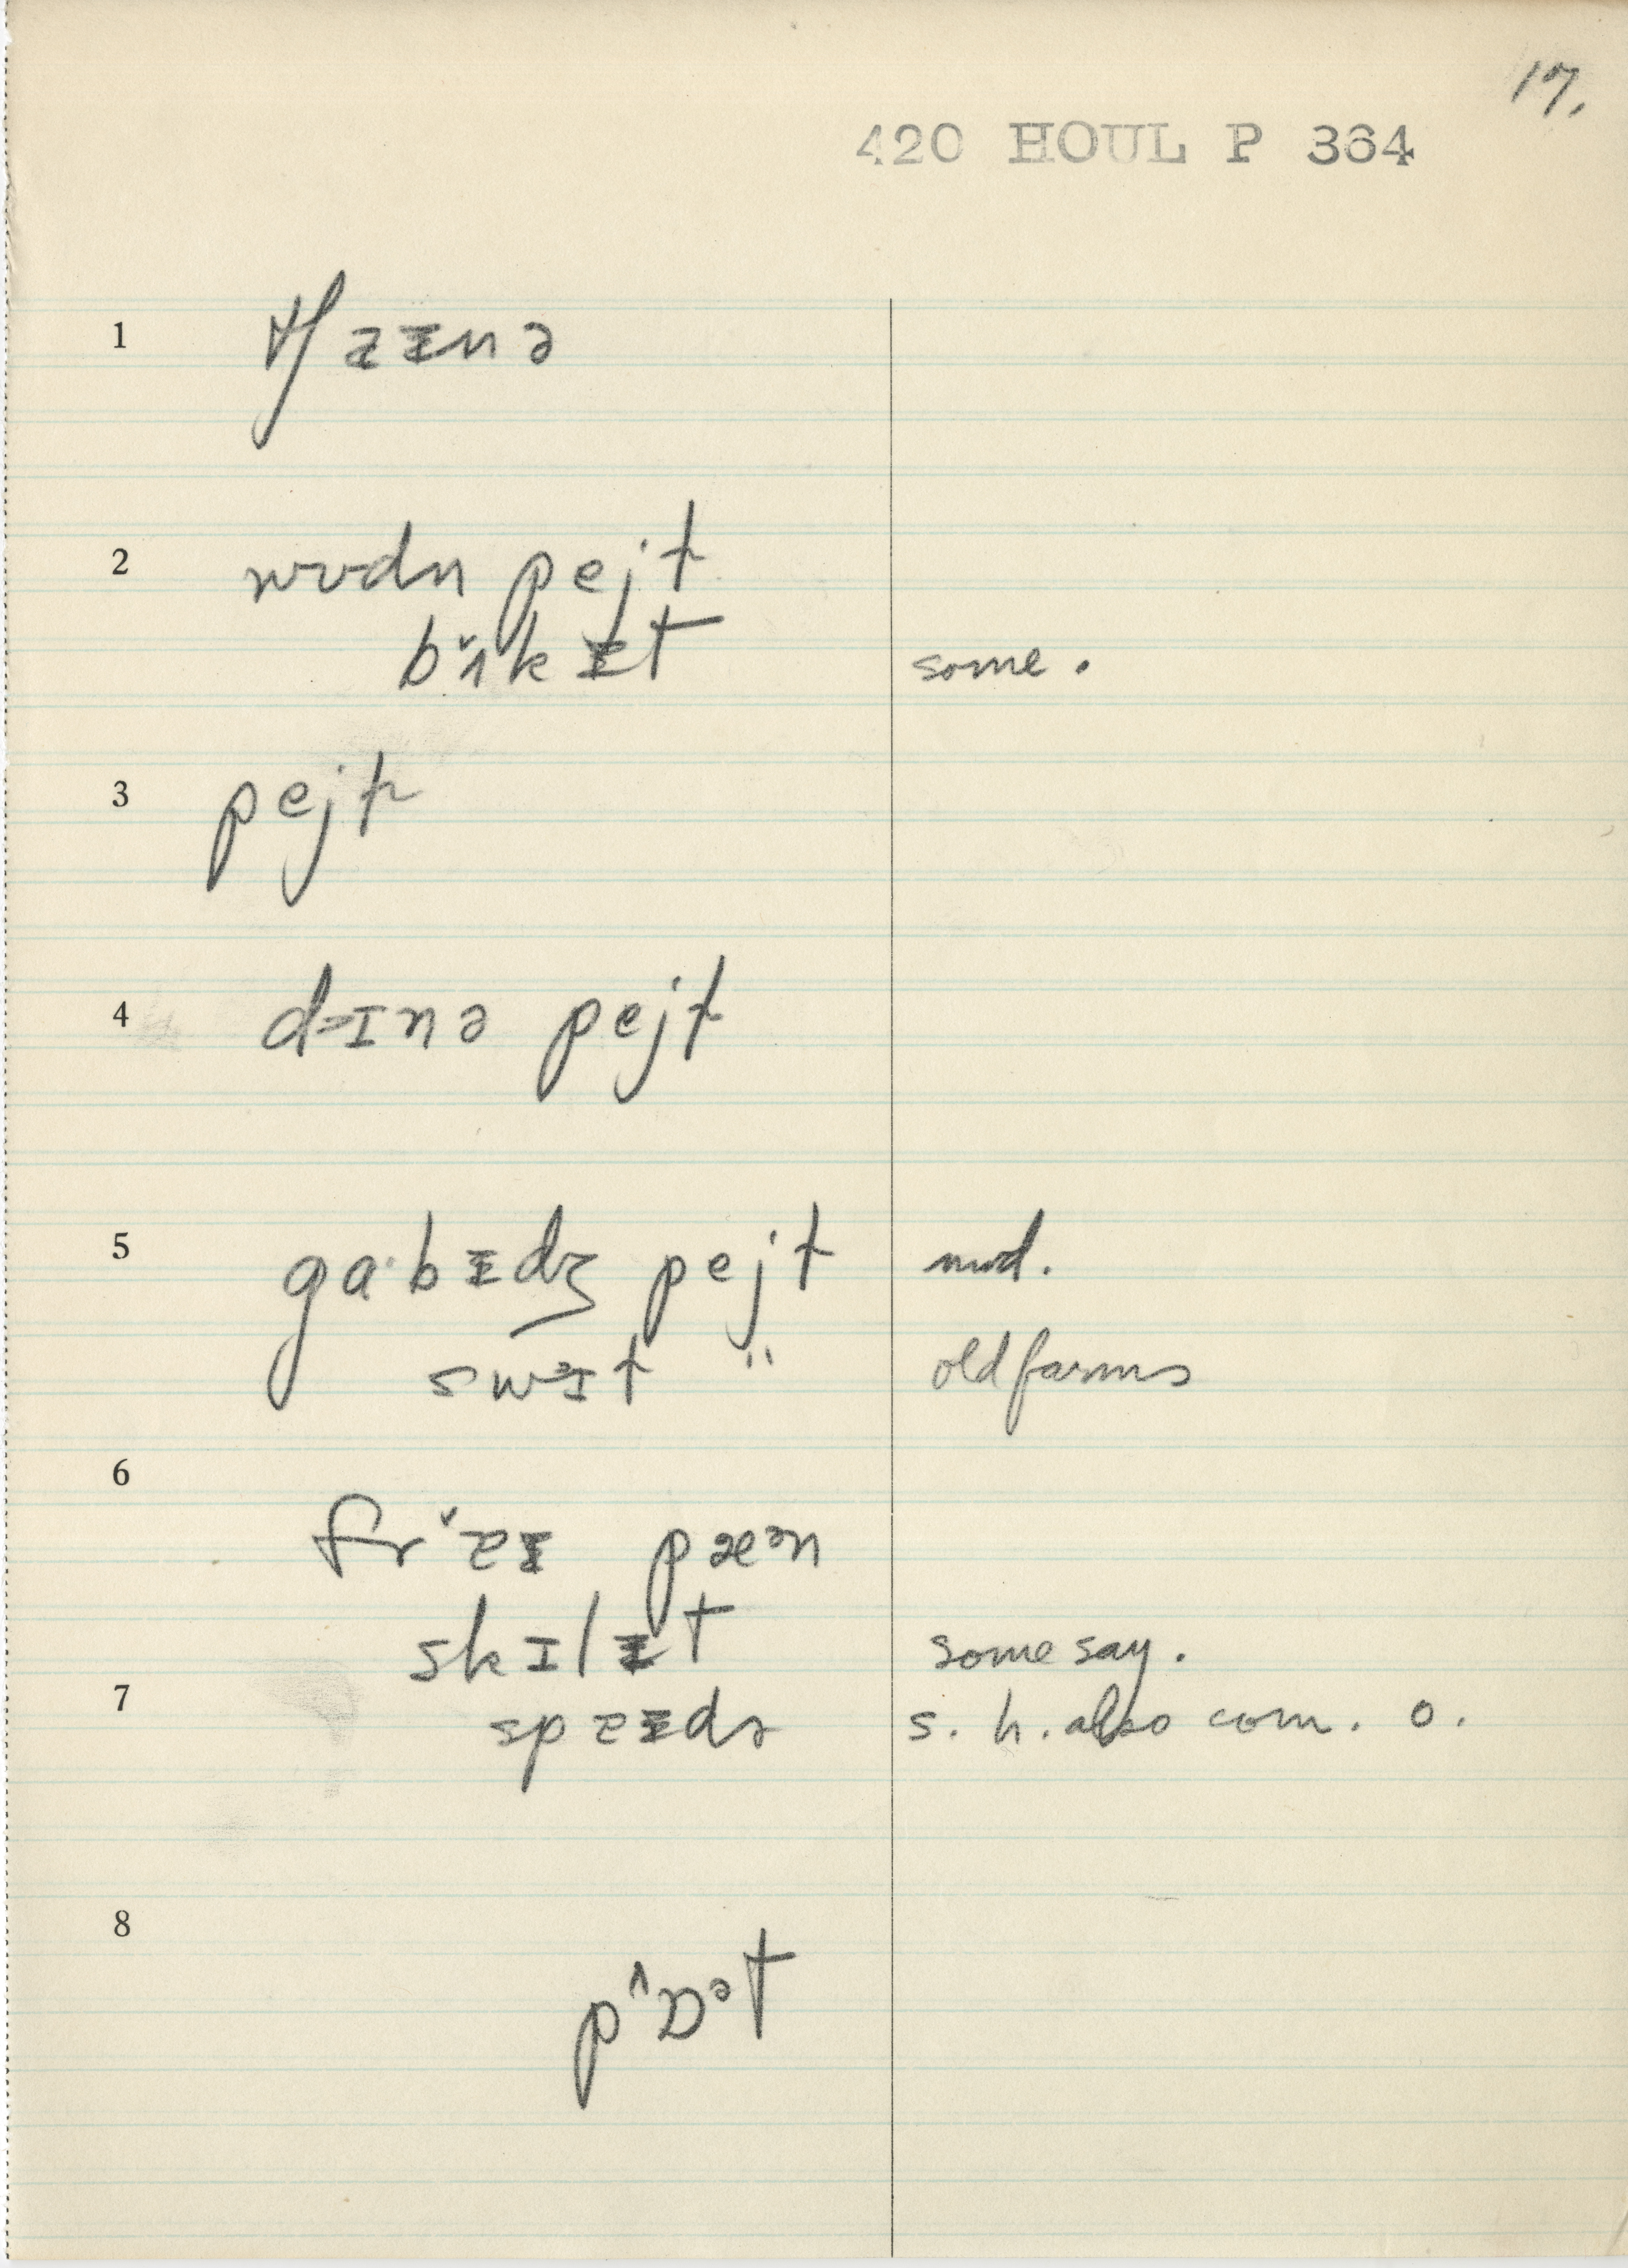 17.
420 HOUL P 364
1 tʃaɪnə
2 wʊdn pejl
bʌ̌kɪ̵t some.
3 pejl
4 dɪnə pejl
5 gaˑbɪ̵dʒ pejl mod.
swɪl " old farms
6
frˇaɪ pæᵊn
skɪlɪ̵t some say.
7 spaɪdə s. h. also com. o.
8
pɒᵊt